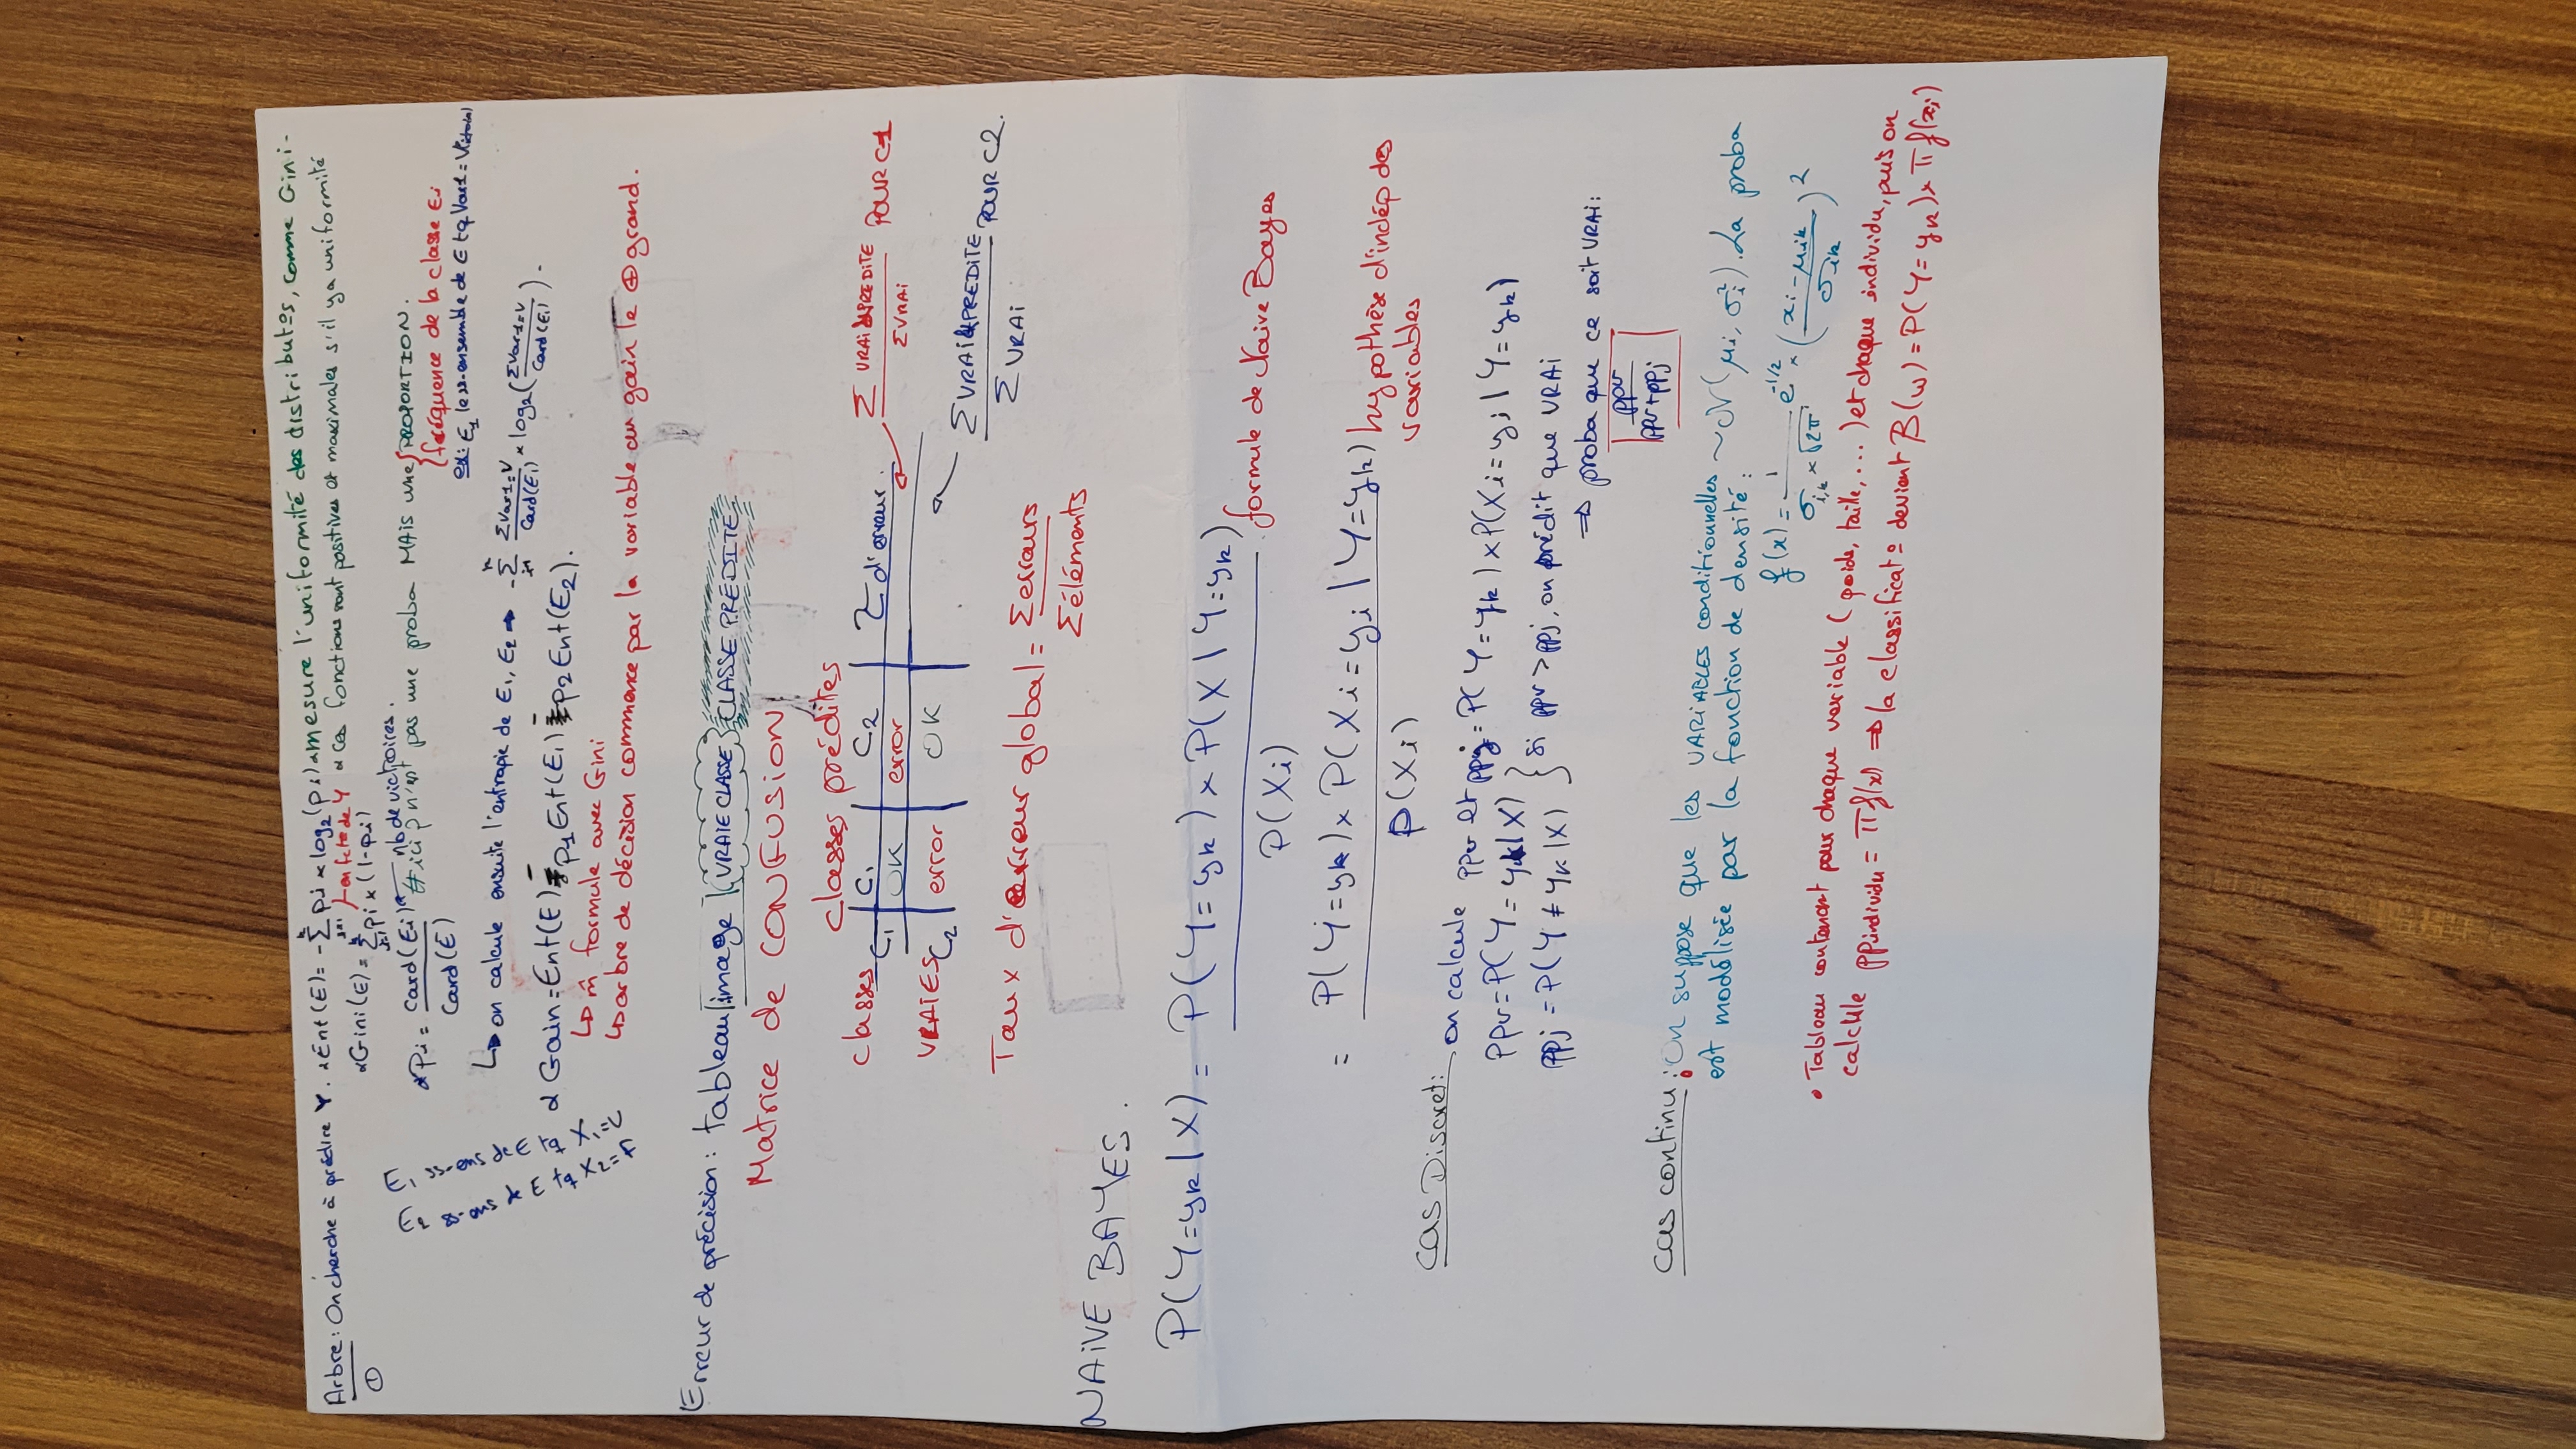 Arbre: On cherche à prédire Y. α Ent(E) = -∑ pi × log₂(pi) α mesure l'uniformité des distribut°s, comme Gini.
① en fct° de Y α ces fonctions sont positives et maximales s'il y a uniformité
α Gini(E) = ∑ pi × (1-pi)
α pi = card(Ei) / Card(E) nb de victoires.
# ici p n'est pas une proba MAIS une { PROPORTION.
{ fréquence de la classe Ei
ex: E₁ le ss-ensemble de E tq Var1 = Victoire
E₁ ss-ens de E tq X₁=V
E₂ ss-ens de E tq X₂=F
↳ on calcule ensuite l'entropie de E₁, E₂ → -∑ ΣVar1=V / Card(E₁) × log₂(ΣVar1=V / Card(E₁)).
α Gain = Ent(E) - p₁Ent(E₁) - p₂Ent(E₂).
↳ m̂ formule avec Gini
↳ arbre de décision commence par la variable au gain le ⊕ grand.
Erreur de précision: tableau/image VRAIE CLASSE CLASSE PRÉDITE
Matrice de CONFUSION
classes prédites
classes C₁ C₂ Σ d'erreur.
C₁ OK error
VRAIES C₂ error OK
Σ VRAI & PREDITE / Σ VRAI POUR C1
Σ VRAI & PREDITE / Σ VRAI POUR C2.
Taux d'erreur global = Σ erreurs / Σ éléments
NAIVE BAYES.
P(Y=yk | X) = P(Y=yk) × P(X | Y=yk) / P(Xi) formule de Naive Bayes
= P(Y=yk) × P(Xi=yi | Y=yk) / P(Xi) hypothèse d'indép des
variables
Cas Discret: on calcule ppv et ppj = P(Y=yk) × P(Xi=yi | Y=yk)
ppv = P(Y=yk | X)
ppj = P(Y≠yk | X) } si ppv > ppj, on prédit que VRAI
⇒ proba que ce soit VRAI:
ppv / ppv+ppj
Cas continu: On suppose que les VARIABLES conditionnelles ~ N(μi, σi²). La proba
est modélisée par la fonction de densité:
f(x) = 1 / σi,k × √2π e^-1/2 × (xi - μik / σik)²
• Tableau contenant pour chaque variable (poids, taille, ...) et chaque individu, puis on
calcule ppindividu = π f(x) ⇒ la classificat° devient B(w) = P(Y=yk) × π f(xi)